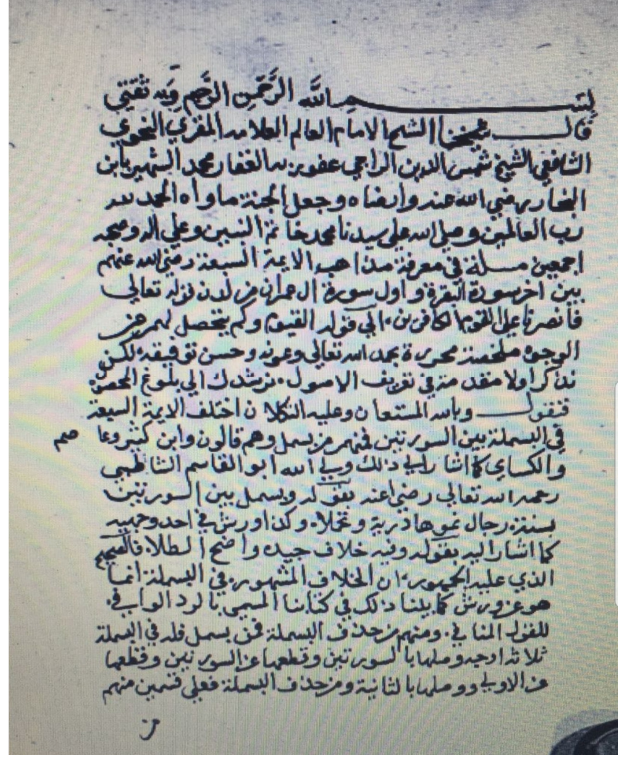 بسم الله الرحمن الرحيم وبه ثقتي
قال شيخنا الشيخ الامام العالم العلامه المقري النحوي
الشافعي الشيخ شمس الدين الراجي عفو ربه الغفار محمد الشهير بابن
النجار رضي الله عنه وارضاه وجعل الجنة ماواه الحمد لله
رب العالمين وصلى الله على سيدنا محمد خاتم النبيين وعلى اله وصحبه
اجمعين مسلة في معرفة مذاهب الايمة السبعة رضي الله عنهم
بين اخر سورة البقرة واول سورة ال عمران من لدن قوله تعالى
فانصرنا على القوم الكافرين الى قوله القيوم وكم يتحصل لهم من
الوجوه ملخصة محررة بحمد الله تعالى وعونه وحسن توفيقه لكن
نذكر اولا مقدمة في تعريف الاصول ترشدك الى بلوغ
فنقول وبالله المستعان وعليه التكلان اختلف الايمة السبعة
في البسملة بين السورتين فمنهم من بسمل وهم قالون وابن كثير وعاصم
والكساي كما اشار الى ذلك ولي الله ابو القاسم الشاطبي
رحمه الله تعالى رضي عنه بقوله وبسمل بين السورتين
بسنة رجال نموها درية وتحملا وكذا ورش في احد وجهيه
كما اشار اليه بقوله وفيه خلاف جيده واضح الطلا فالصحيح
الذي عليه الجمهور ان الخلاف المشهور في البسملة انما
هو عن ورش كما بينا ذلك في كتابنا المسمى بالرد الوافي
للقول المنافي ومنهم من حذف البسملة فمن بسمل فله في البسملة
ثلاثة اوجه وصلها بالسورتين وقطعها عن السورتين وقطعها
عن الاولى ووصلها بالثانية ومن حذف البسملة فعلى قسمين منهم
من